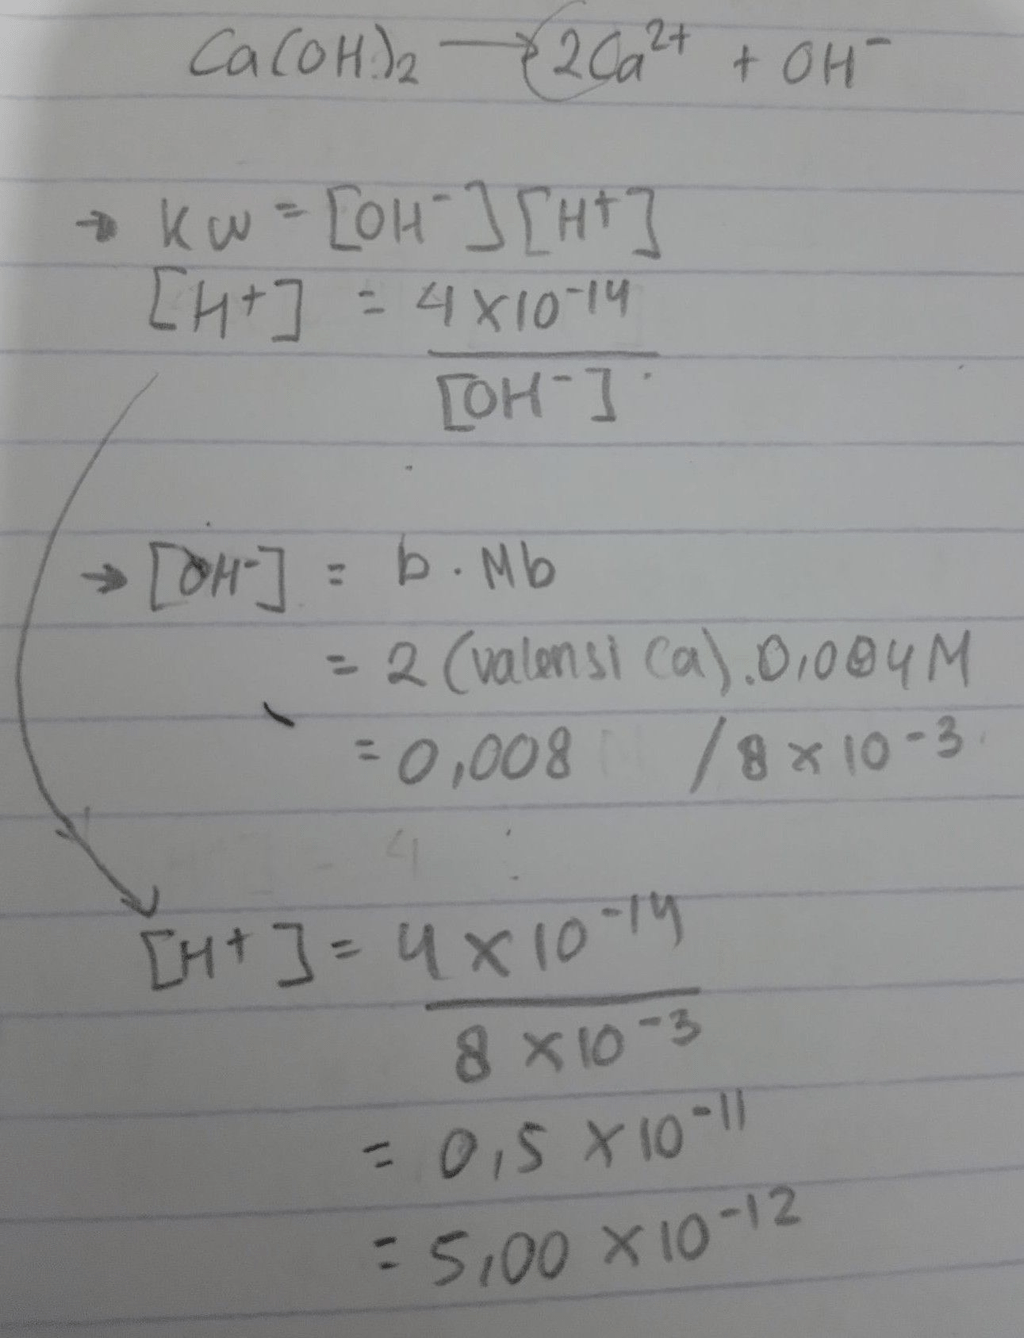 Ca(OH)2 → 2Ca²⁺ + OH⁻
→ Kw = [OH⁻][H⁺]
[H⁺] = 4 x 10⁻¹⁴
[OH⁻]
→ [OH⁻] = b . Mb
= 2 (valensi Ca) . 0,004 M
= 0,008 / 8 x 10⁻³
4
[H⁺] = 4 x 10⁻¹⁴
8 x 10⁻³
= 0,5 x 10⁻¹¹
= 5,00 x 10⁻¹²